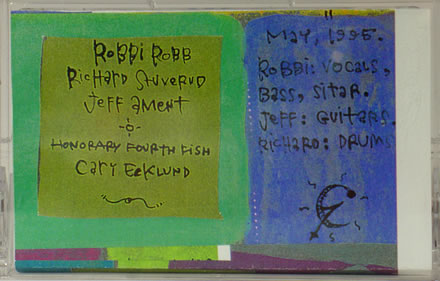 RObbi RObb
RichARD StuveRuD
Jeff AmeNT
HONORARY FOURTH FISH
CARY EcKLUND
MAY, 1995.
RObbi: VOCALS,
BASS, SITAR.
Jeff: GUiTARS.
RICHARD: DRUMS